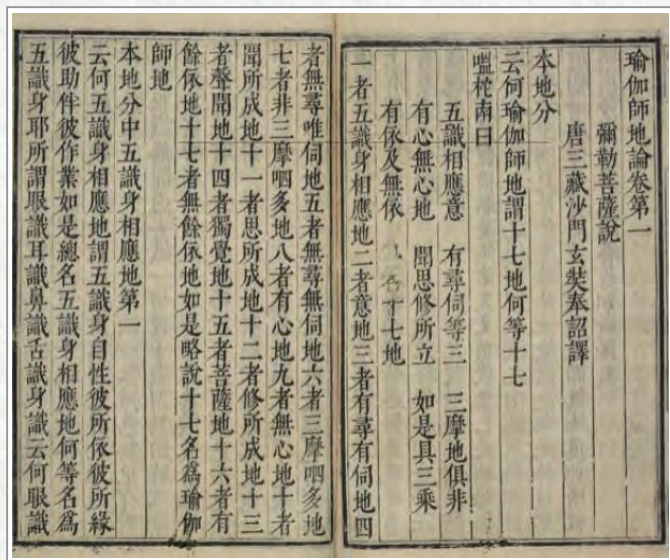 瑜伽師地論卷第一
彌勒菩薩說
唐三藏沙門玄奘奉詔譯
本地分
云何瑜伽師地謂十七地何等十七
嗢柁南曰
五識相應意　有尋伺等三　三摩地俱非
有心無心地　聞思修所立　如是具三乘
有依及無依　是名十七地
一者五識身相應地二者意地三者有尋有伺地四
者無尋唯伺地五者無尋無伺地六者三摩呬多地
七者非三摩呬多地八者有心地九者無心地十者
聞所成地十一者思所成地十二者修所成地十三
者聲聞地十四者獨覺地十五者菩薩地十六者有
餘依地十七者無餘依地如是略說十七名為瑜伽
師地
本地分中五識身相應地第一
云何五識身相應地謂五識身自性彼所依彼所緣
彼助伴彼作業如是總名五識身相應地何等名為
五識身耶所謂眼識耳識鼻識舌識身識云何眼識